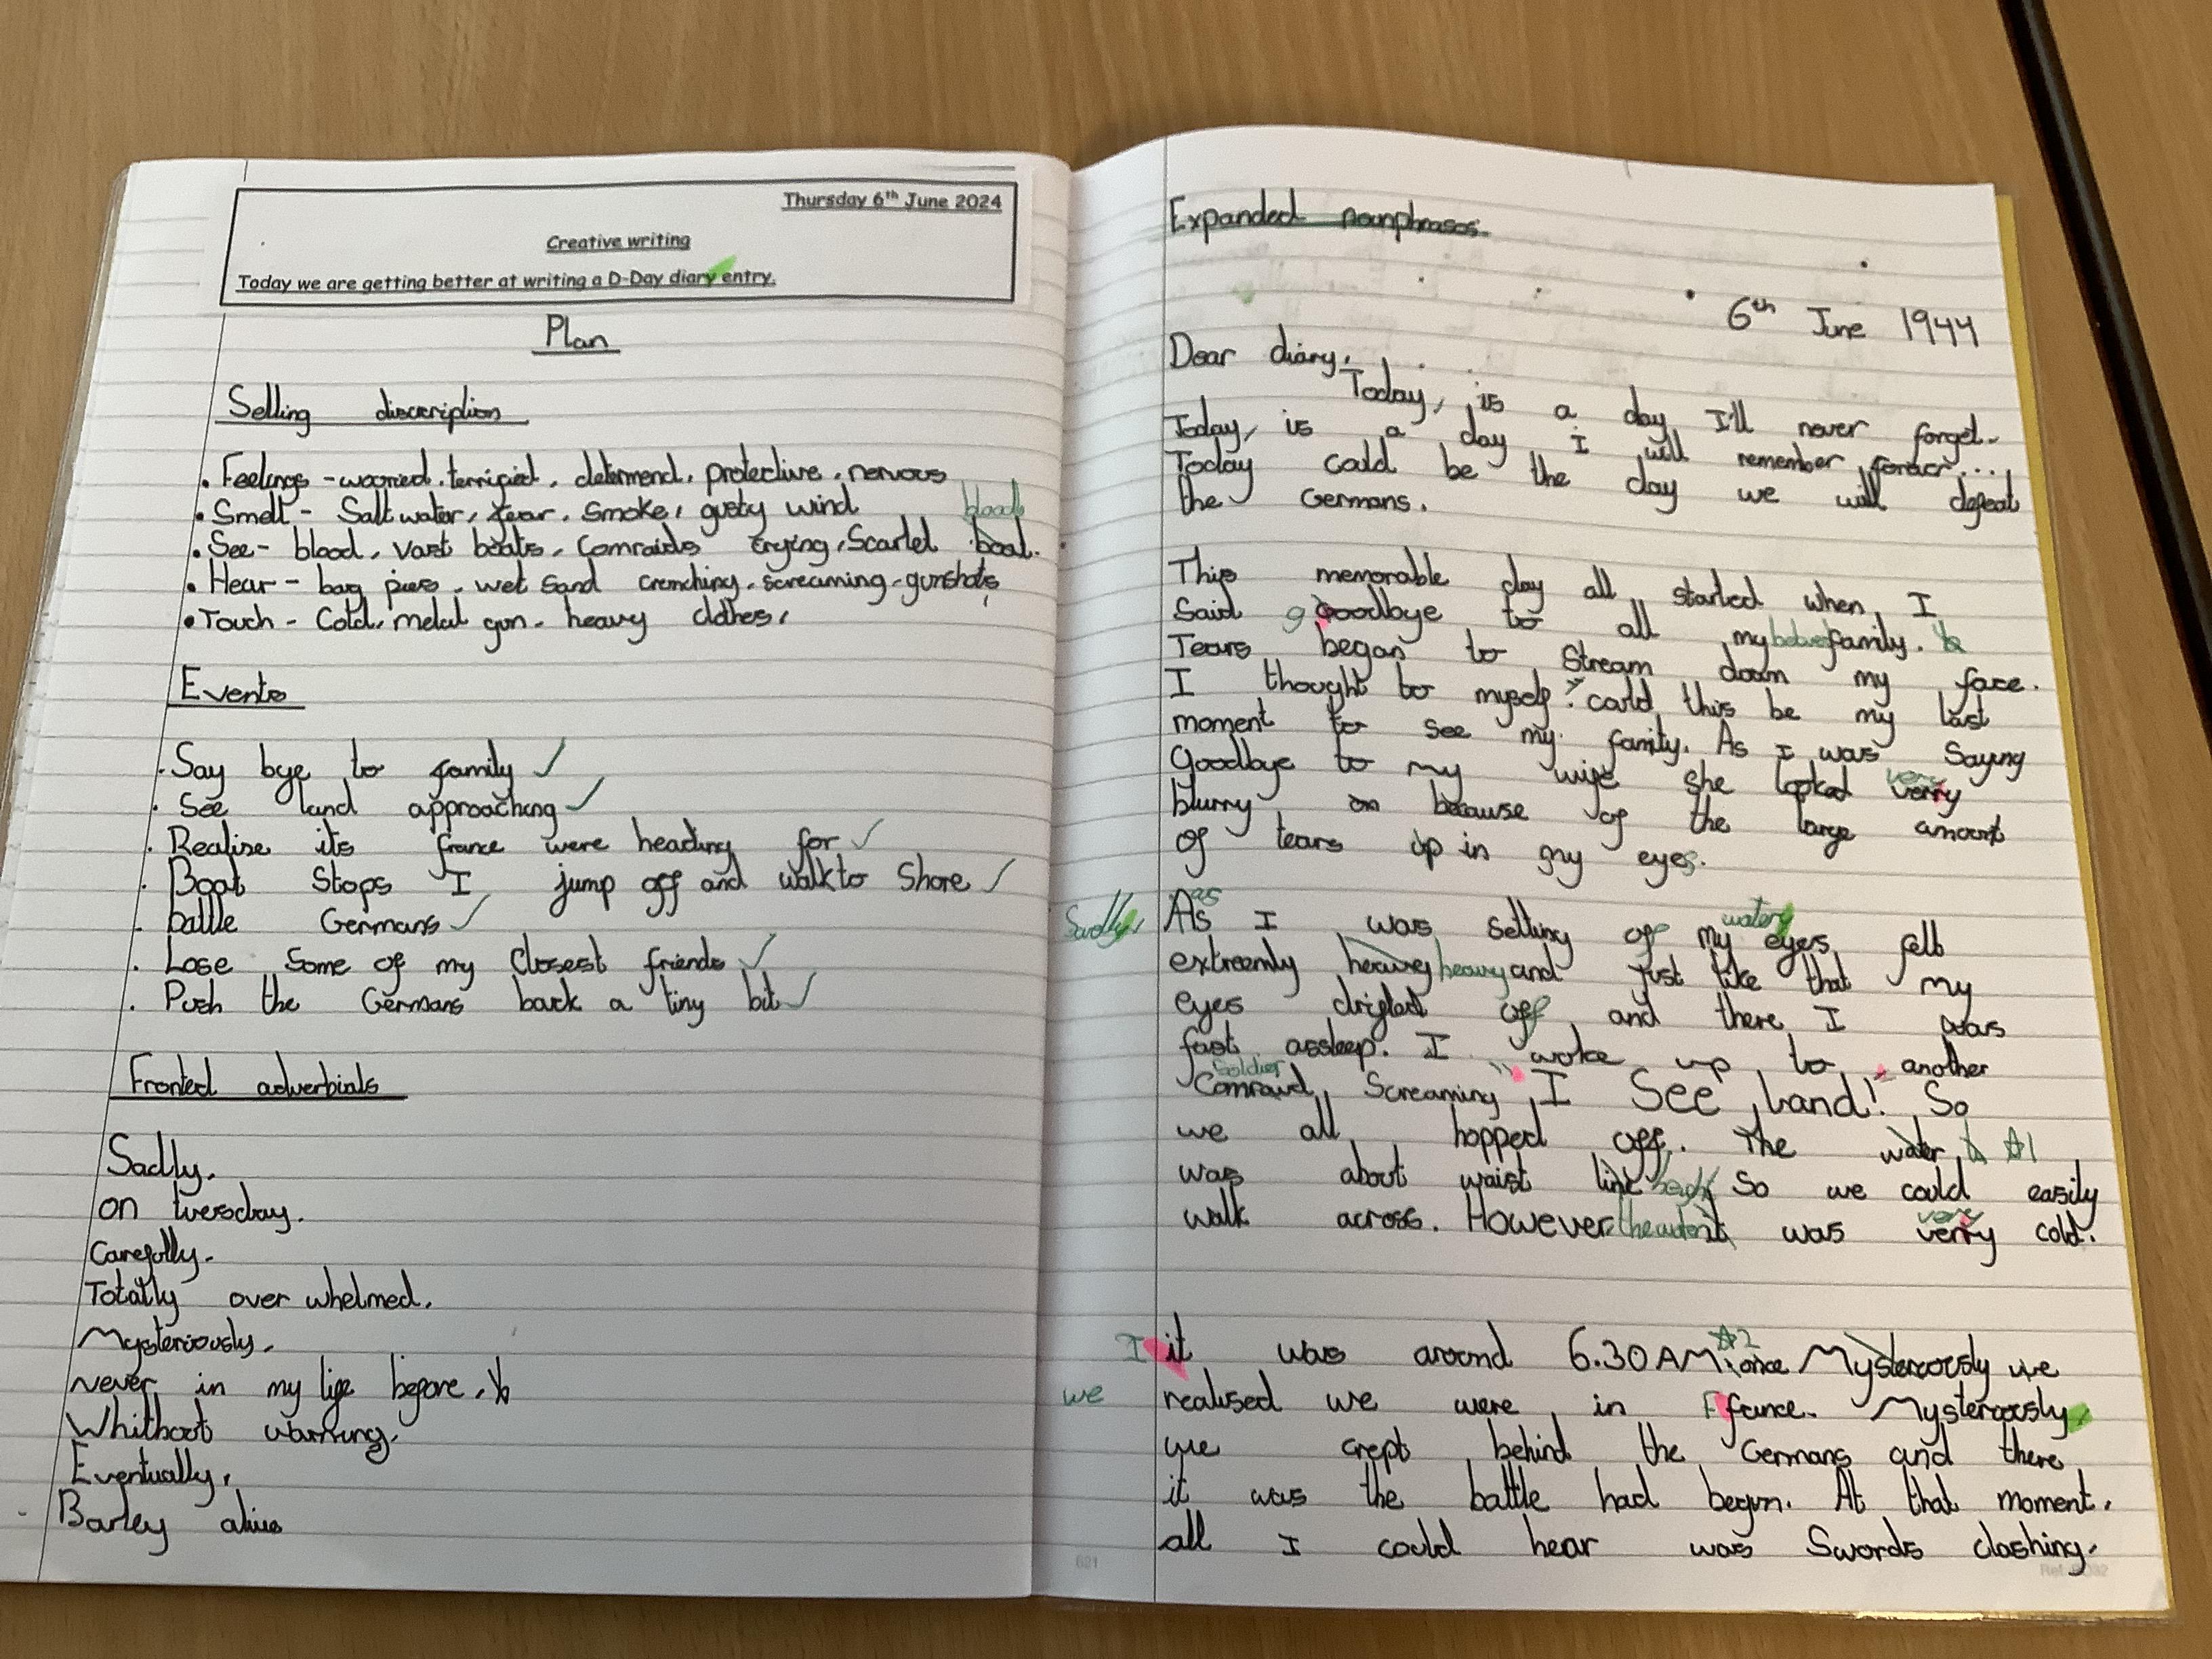 Thursday 6th June 2024
Creative writing
Today we are getting better at writing a D-Day diary entry.
Plan
Setting disccription
• Feelings - worried, terrified, determend, protective, nervous
• Smell - Salt water, fear, smoke, gusty wind
• See - blood, vast boats, Comraids crying, Scarlet boat.
• Hear - bag pies, wet sand crenching, screaming, gunshots
• Touch - Cold, metal gun, heavy clothes,
Events
. Say bye to family ✓
. See land approaching ✓
. Realise its france were heading for ✓
. Boat Stops I jump off and walk to Shore ✓
. battle Germans ✓
. Lose Some of my Closest friends ✓
. Push the Germans back a tiny bit ✓
Fronted adverbials
Sadly,
on tuesday,
Carefully,
Totally over whelmed,
Mysteriously,
never in my life before,
Whithout warning,
Eventually,
Barley alive
Expanded nounphrases
6th June 1944
Dear diary,
Today, is a day I'll never forget.
Today, is a day I will remember forever...
Today could be the day we will defeat
the Germans.
This memorable day all started when I
Said g goodbye to all my family.
Tears began to Stream down my face.
I thought to myself? could this be my last
moment to see my family. As I was Saying
Goodbye to my wife she looked very verry
blurry because of the large amount
of tears up in my eyes.
Sadly, as As I was setting off my watery eyes felt
extreemly heavey heavy and just like that my
eyes drifted off and there I was
fast assleep. I woke up to another
soldier Comraid Screaming "I See Land!" So
we all hopped off. The water ☆1
was about waist line height So we could easily
walk across. However the water it was very verry cold.
I it was around 6.30 AM ☆2 once Mysteriously we
we realised we were in F france. Mysteriously,
we crept behind the Germans and there
it was the battle had begun. At that moment,
all I could hear was Swords clashing,
621